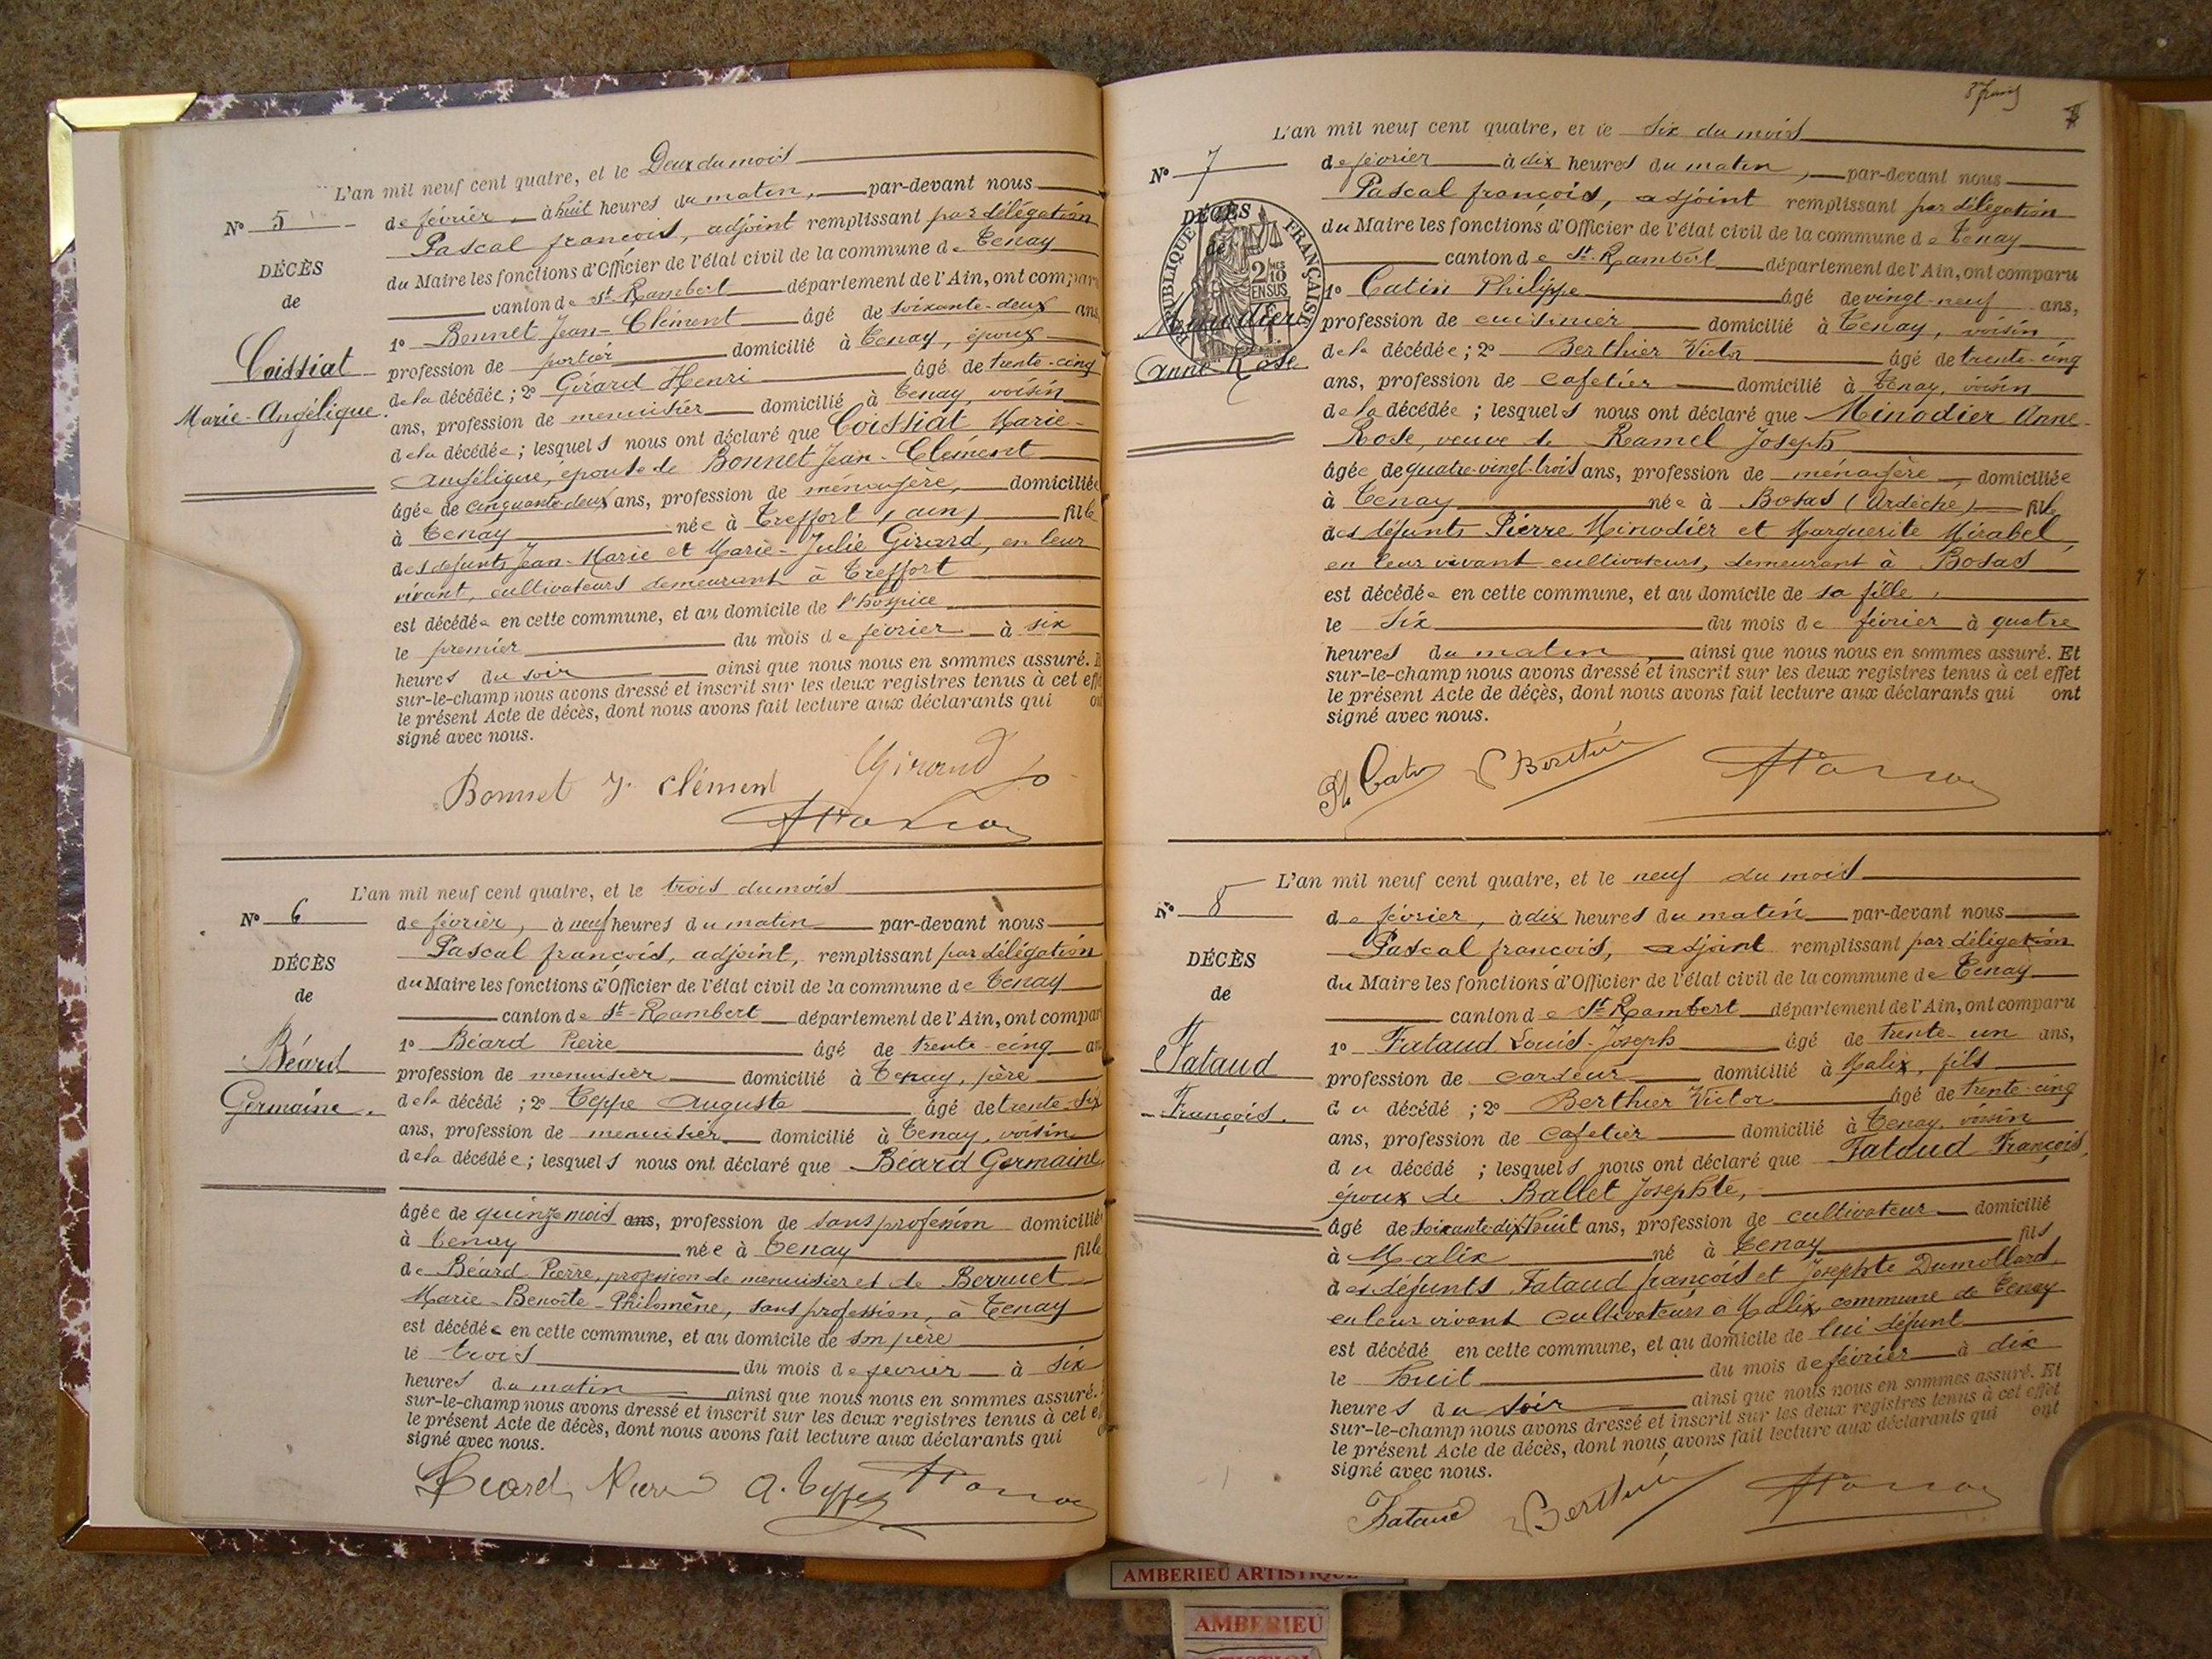 L'an mil neuf cent quatre, et le Deux du mois
N° 5
de février, à huit heures du matin, par-devant nous
Pascal françois, adjoint remplissant par délégation
DÉCÈS
du Maire les fonctions d'Officier de l'état civil de la commune de Tenay
de
canton de St Rambert département de l'Ain, ont comparu
1° Bonnet Jean-Clément âgé de soixante-deux ans,
Coissiat
profession de portier domicilié à Tenay, époux
de la décédée ; 2° Girard Henri âgé de trente-cinq
Marie-Angélique.
ans, profession de menuisier domicilié à Tenay, voisin
de la décédée ; lesquels nous ont déclaré que Coissiat Marie-
Angélique, épouse de Bonnet Jean-Clément
âgée de cinquante-deux ans, profession de ménagère, domiciliée
à Tenay née à Treffort (ain) fille
des défunts Jean-Marie et Marie-Julie Girard, en leur
vivant, cultivateurs demeurant à Treffort
est décédée en cette commune, et au domicile de l'hospice
le premier du mois de février à six
heures du soir ainsi que nous nous en sommes assuré. E
sur-le-champ nous avons dressé et inscrit sur les deux registres tenus à cet effet
le présent Acte de décès, dont nous avons fait lecture aux déclarants qui on
signé avec nous.
Bonnet J. Clément
L'an mil neuf cent quatre, et le trois du mois
N° 6
de février, à neuf heures du matin par-devant nous
Pascal françois, adjoint, remplissant par délégation
DÉCÈS
du Maire les fonctions d'Officier de l'état civil de la commune de Tenay
de
canton de St-Rambert département de l'Ain, ont compar
1° Béard Pierre âgé de trente-cinq an
Béard
profession de menuisier domicilié à Tenay, père
Germaine.
de la décédé ; 2° Teppe Auguste âgé de trente-six
ans, profession de menuisier domicilié à Tenay, voisin
de la décédée ; lesquels nous ont déclaré que Béard Germaine
âgée de quinze mois ans, profession de sans profession domiciliée
à Tenay née à Tenay fille
de Béard Pierre, profession de menuisier et de Berruet
Marie-Benoîte-Philomène, sans profession, à Tenay
est décédée en cette commune, et au domicile de son père
le trois du mois de février à six
heures du matin ainsi que nous nous en sommes assuré.
sur-le-champ nous avons dressé et inscrit sur les deux registres tenus à cet e
le présent Acte de décès, dont nous avons fait lecture aux déclarants qui
signé avec nous.
Béard Pierre A. Teppe
L'an mil neuf cent quatre, et le six du mois
N° 7
de février à dix heures du matin, par-devant nous
Pascal françois, adjoint remplissant par délégation
DÉCÈS
du Maire les fonctions d'Officier de l'état civil de la commune de Tenay
de
canton de St-Rambert département de l'Ain, ont comparu
RÉPUBLIQUE FRANÇAISE
2/10 EN SUS
1° Catin Philippe âgé de vingt-neuf ans,
Minodier
profession de cuisinier domicilié à Tenay, voisin
Anne Rose
de la décédée ; 2° Berthier Victor âgé de trente-cinq
ans, profession de cafetier domicilié à Tenay, voisin
de la décédée ; lesquels nous ont déclaré que Minodier Anne-
Rose, veuve de Ramel Joseph
âgée de quatre-vingt-trois ans, profession de ménagère, domiciliée
à Tenay née à Bosas (Ardèche) fille
des défunts Pierre Minodier et Marguerite Mirabel,
en leur vivant cultivateurs, demeurant à Bosas
est décédée en cette commune, et au domicile de sa fille,
le six du mois de février à quatre
heures du matin, ainsi que nous nous en sommes assuré. Et
sur-le-champ nous avons dressé et inscrit sur les deux registres tenus à cet effet
le présent Acte de décès, dont nous avons fait lecture aux déclarants qui ont
signé avec nous.
Ph. Catin Berthier
L'an mil neuf cent quatre, et le neuf du mois
N° 8
de février, à dix heures du matin par-devant nous
Pascal francois, adjoint remplissant par délégation
DÉCÈS
du Maire les fonctions d'Officier de l'état civil de la commune de Tenay
de
canton de St Rambert département de l'Ain, ont comparu
1° Fataud Louis-Joseph âgé de trente-un ans,
Fataud
profession de cardeur domicilié à Malix, fils
François.
du décédé ; 2° Berthier Victor âgé de trente-cinq
ans, profession de cafetier domicilié à Tenay, voisin
du décédé ; lesquels nous ont déclaré que Fataud François,
époux de Ballet Josephte,
âgé de soixante-dix-huit ans, profession de cultivateur domicilié
à Malix né à Tenay fils
des défunts Fataud françois et Josephte Dumollard,
en leur vivant cultivateurs à Malix, commune de Tenay
est décédé en cette commune, et au domicile de lui défunt
le huit du mois de février à dix
heures du soir ainsi que nous nous en sommes assuré. Et
sur-le-champ nous avons dressé et inscrit sur les deux registres tenus à cet effet
le présent Acte de décès, dont nous avons fait lecture aux déclarants qui ont
signé avec nous.
Fataud Berthier
AMBERIEU ARTISTIQUE
AMBERIEU